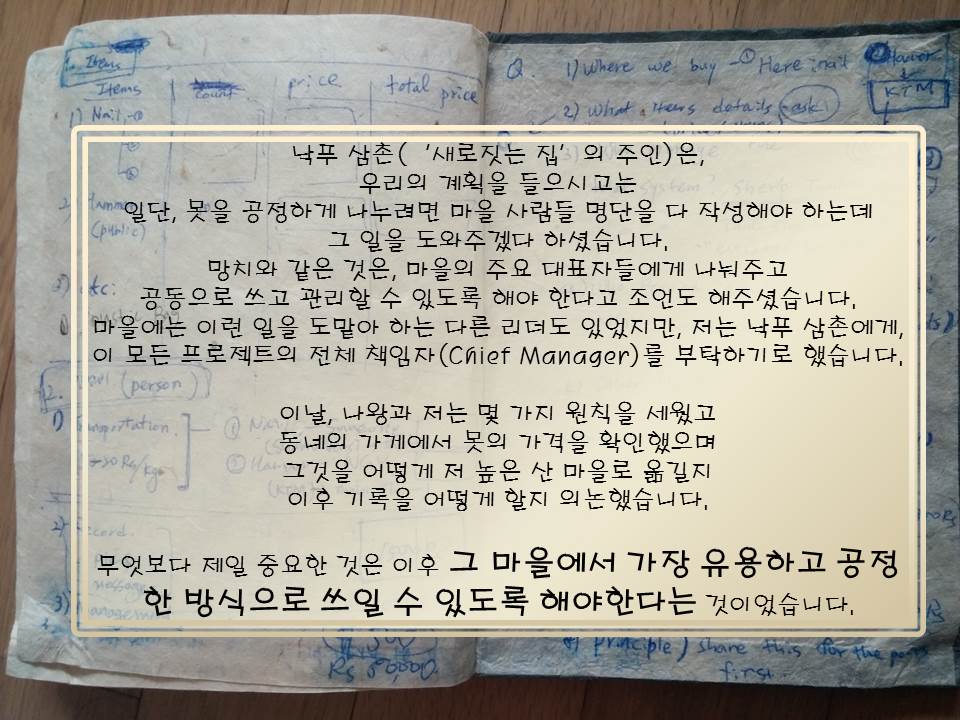 Items
Items
count
price
total price
1) Nail
(public)
(person)
Rs 50,000.
Q. 1) Where we buy - ① Here nail
KTM
2) What items details ask
낙푸 삼촌( '새로짓는 집' 의 주인)은,
우리의 계획을 들으시고는
일단, 못을 공정하게 나누려면 마을 사람들 명단을 다 작성해야 하는데
그 일을 도와주겠다 하셨습니다.
망치와 같은 것은, 마을의 주요 대표자들에게 나눠주고
공동으로 쓰고 관리할 수 있도록 해야 한다고 조언도 해주셨습니다.
마을에는 이런 일을 도맡아 하는 다른 리더도 있었지만, 저는 낙푸 삼촌에게,
이 모든 프로젝트의 전체 책임자(Chief Manager)를 부탁하기로 했습니다.
이날, 나왕과 저는 몇 가지 원칙을 세웠고
동네의 가게에서 못의 가격을 확인했으며
그것을 어떻게 저 높은 산 마을로 옮길지
이후 기록을 어떻게 할지 의논했습니다.
무엇보다 제일 중요한 것은 이후 그 마을에서 가장 유용하고 공정
한 방식으로 쓰일 수 있도록 해야한다는 것이었습니다.
principle) share this for the
first.